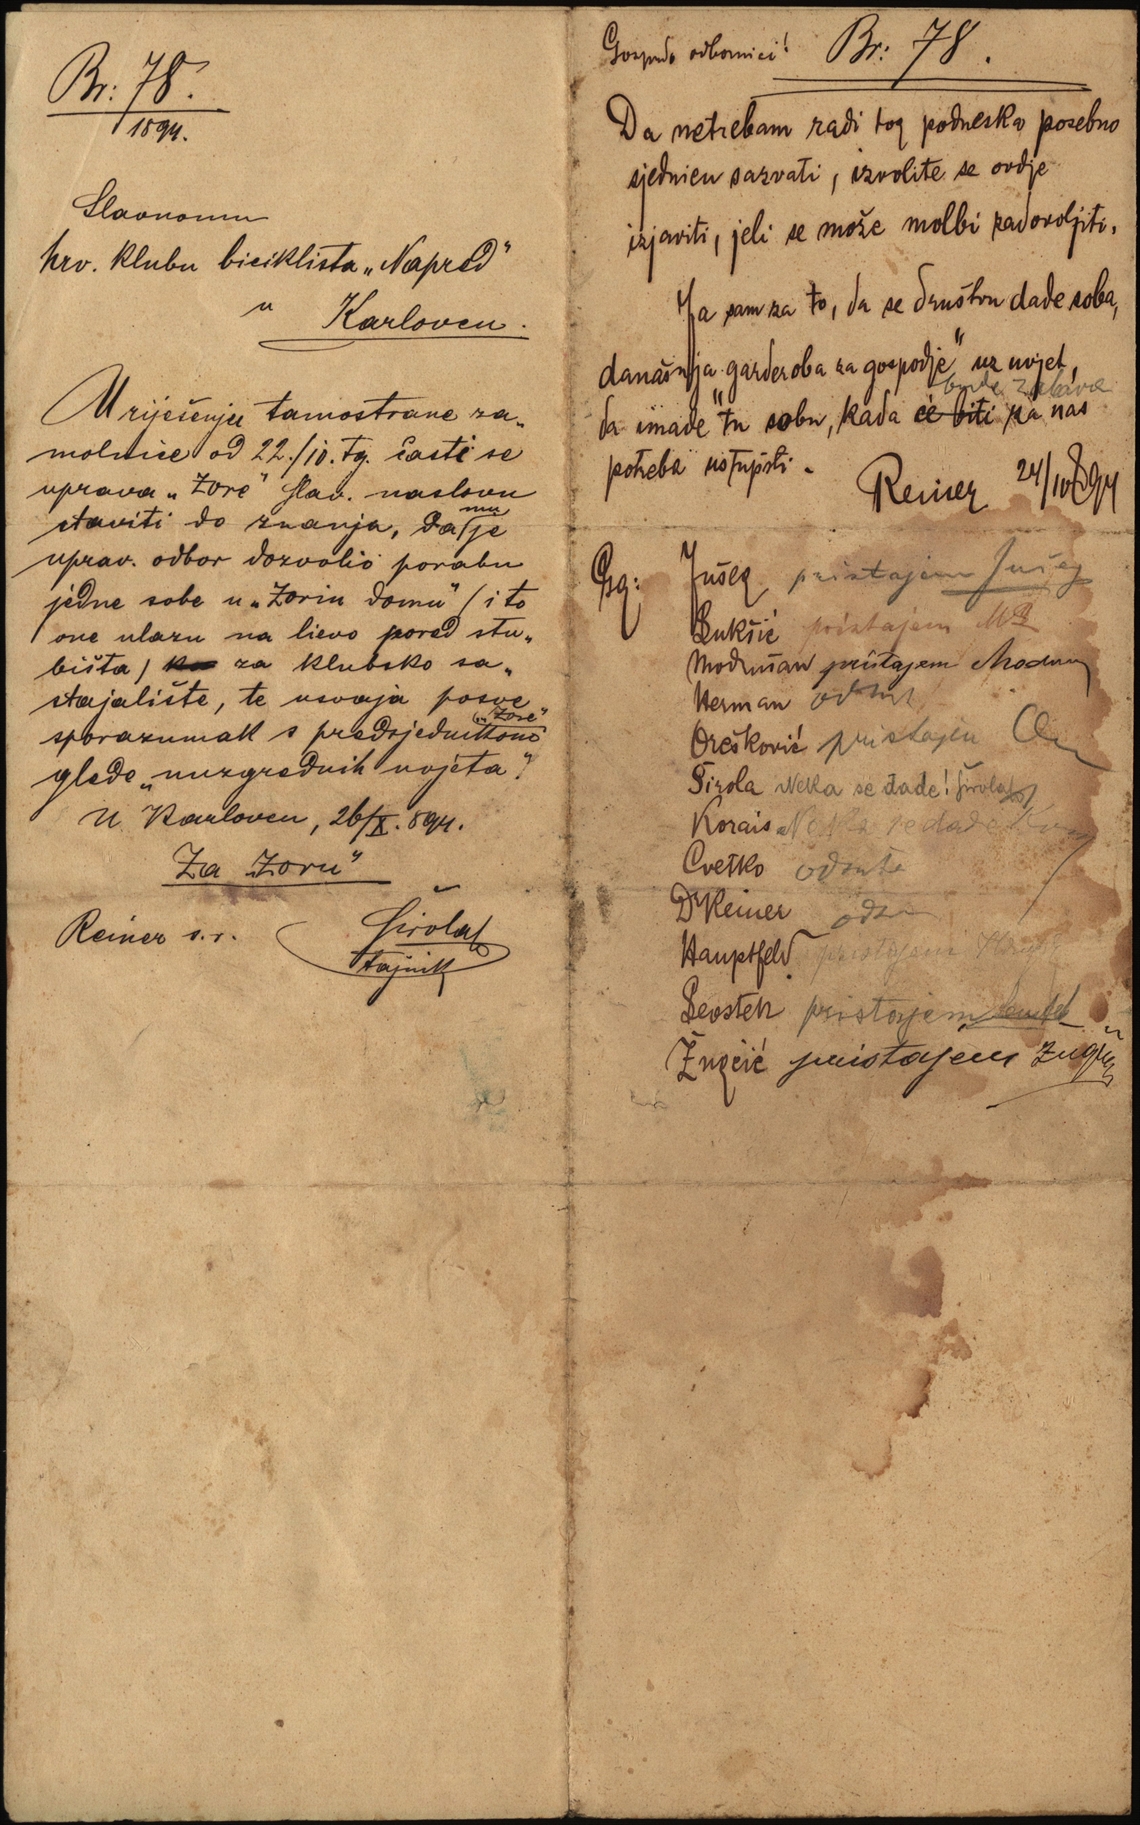 Br: 78.
1894.
Slavnomu
hrv. klubu biciklista „Napred"
u Karlovcu.
U riješenju tamostrane za„
molnice od 22./10. tg. časti se
uprava „Zore" slav. naslovu
staviti do znanja, da mu je
uprav. odbor dozvolio porabu
jedne sobe u „Zorin domu" (i to
one ulazu na lievo pored stu„
bišta) za klubsko sa„
stajalište, te usvaja posve
sporazumak s predsjednikom „Zore"
glede „nuzgrednih uvjeta".
U Karlovcu, 26/X. 894.
Za „Zoru"
Reiner s.r. Širola
tajnik
Gospodo odbornici! Br: 78.
Da netrebam radi tog podneska posebno
sjednicu sazvati, izvolite se ovdje
izjaviti, jeli se može molbi zadovoljiti.
Ja sam za to, da se družtvu dade soba,
današnja „garderoba za gospodje" uz uvjet,
da imade tu sobu, kada će biti bude zabava za nas
potreba ustupiti.
Reiner 24/10 894
Gg: Jušeg pristajem Jušeg
Lukšić pristajem
Modrušan pristajem Modruš
Herman odsut
Orešković pristajem
Širola Neka se dade! Širola
Korais Neka se dade
Cvetko odsut
Dr Reiner
Hauptfeld pristajem
Levstek pristajem
Žugčić pristajem Žugčić